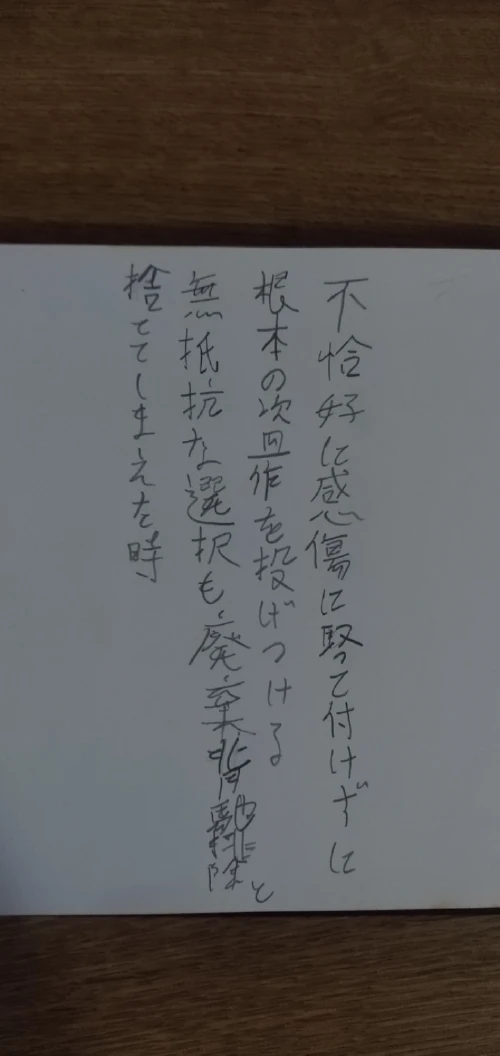 不恰好に感傷に って付けずに
根本の次回作を投げつける
無抵抗な選択も廃棄 排除と
捨ててしまえた時